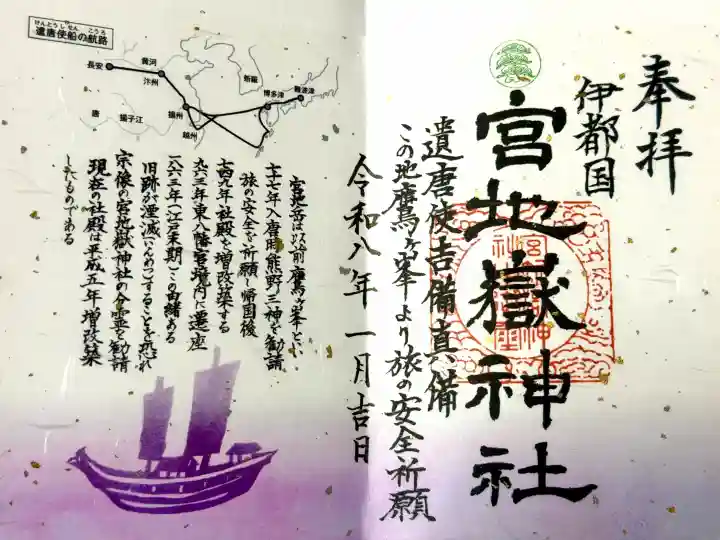 奉拝
伊都国
宮地嶽神社
遣唐使吉備真備
この地鷹ヶ峯より旅の安全祈願
令和八年一月吉日
けんとうしせん こうろ
遣唐使船の航路
長安
黄河
汴州
新羅
博多津
難波津
唐
揚子江
揚州
越州
宮地岳は以前鷹ヶ峯といい
七一七年入唐用熊野三神を勧請
旅の安全を祈願し帰国後
七四九年社殿を増改築する
九六三年東八幡宮境内に遷座
一八六三年(江戸末期)この由緒ある
旧跡が湮滅(いんめつ)することを恐れ
宗像の宮地嶽神社の分霊を勧請
現在の社殿は平成五年増改築
したものである